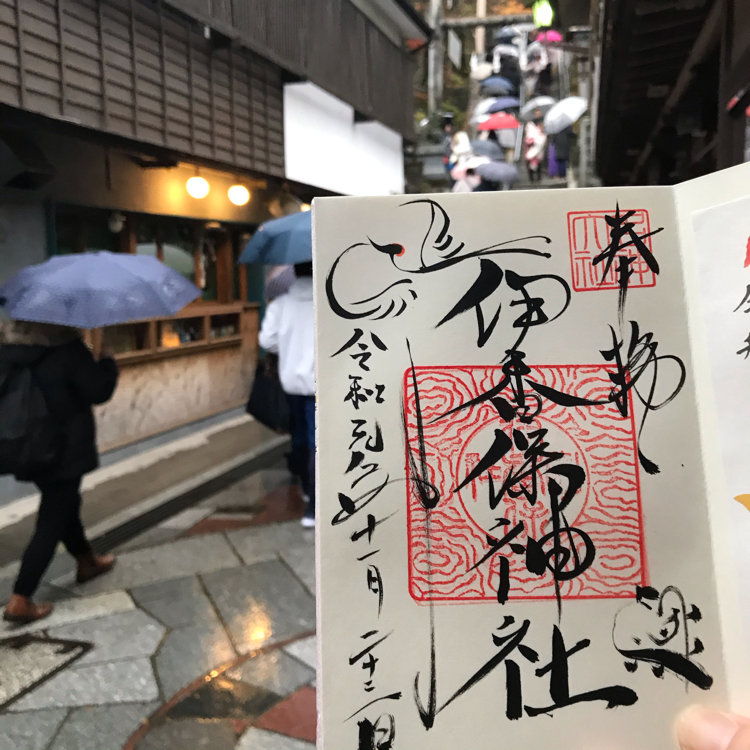 奉拝
伊香保神社
令和元年十一月二十二日